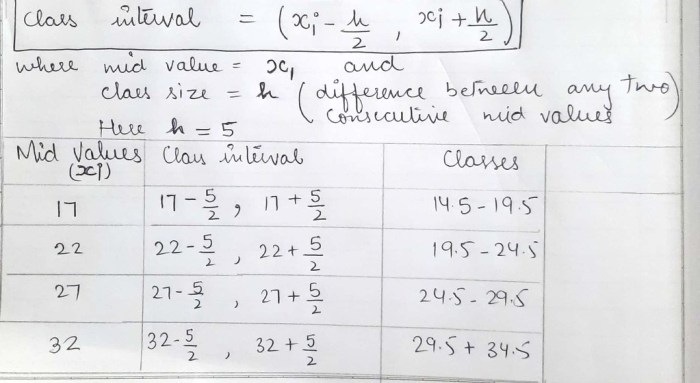 Class interval = (xi - h/2 , xi + h/2)
where mid value = xi and
class size = h (difference between any two
consecutive mid values)
Here h = 5
Mid Values (xi) Class interval Classes
17 17 - 5/2 , 17 + 5/2 14.5 - 19.5
22 22 - 5/2 , 22 + 5/2 19.5 - 24.5
27 27 - 5/2 , 27 + 5/2 24.5 - 29.5
32 32 - 5/2 , 32 + 5/2 29.5 + 34.5